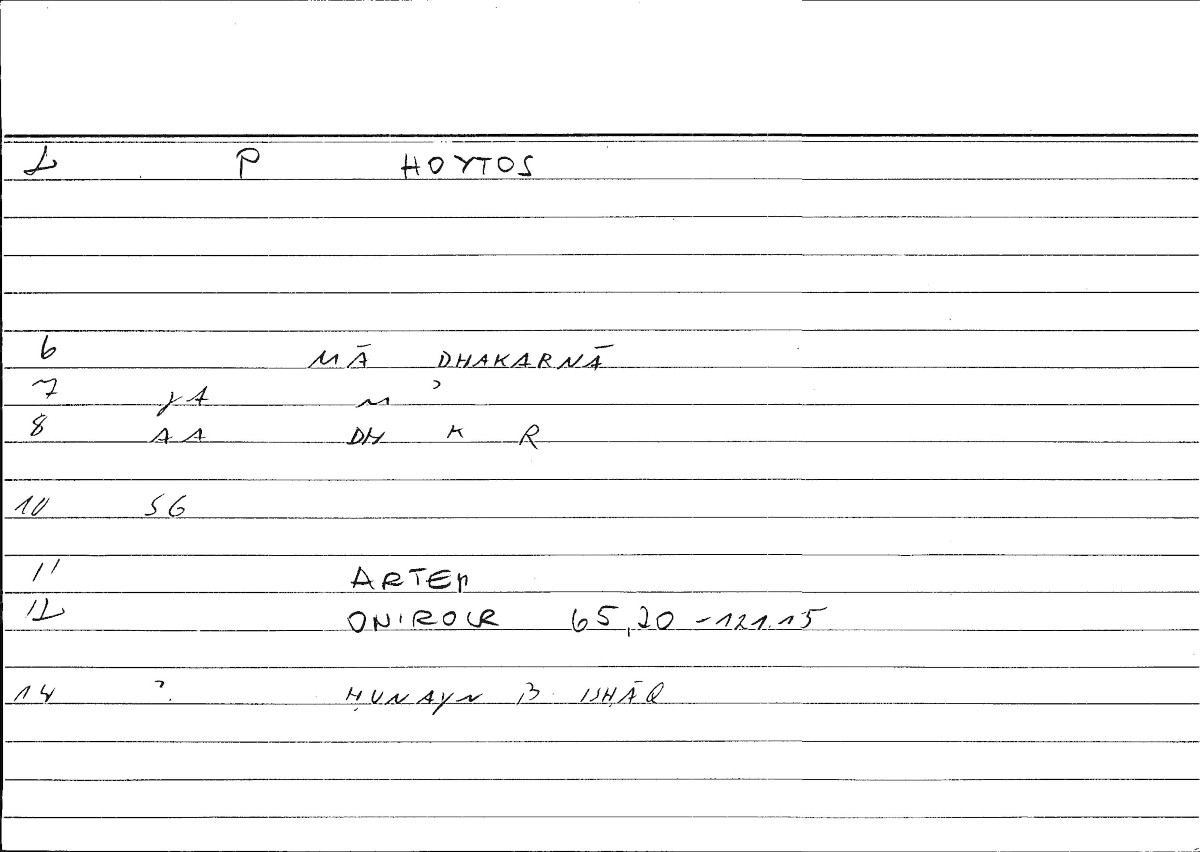 2 P HOYTOS
6 MĀ DHAKARNĀ
7 YA M ʾ
8 AA DH K R
10 SG
11 ARTEM
12 ONIROCR 65,20 - 121.15
14 ? ḤUNAYN B ISḤĀQ